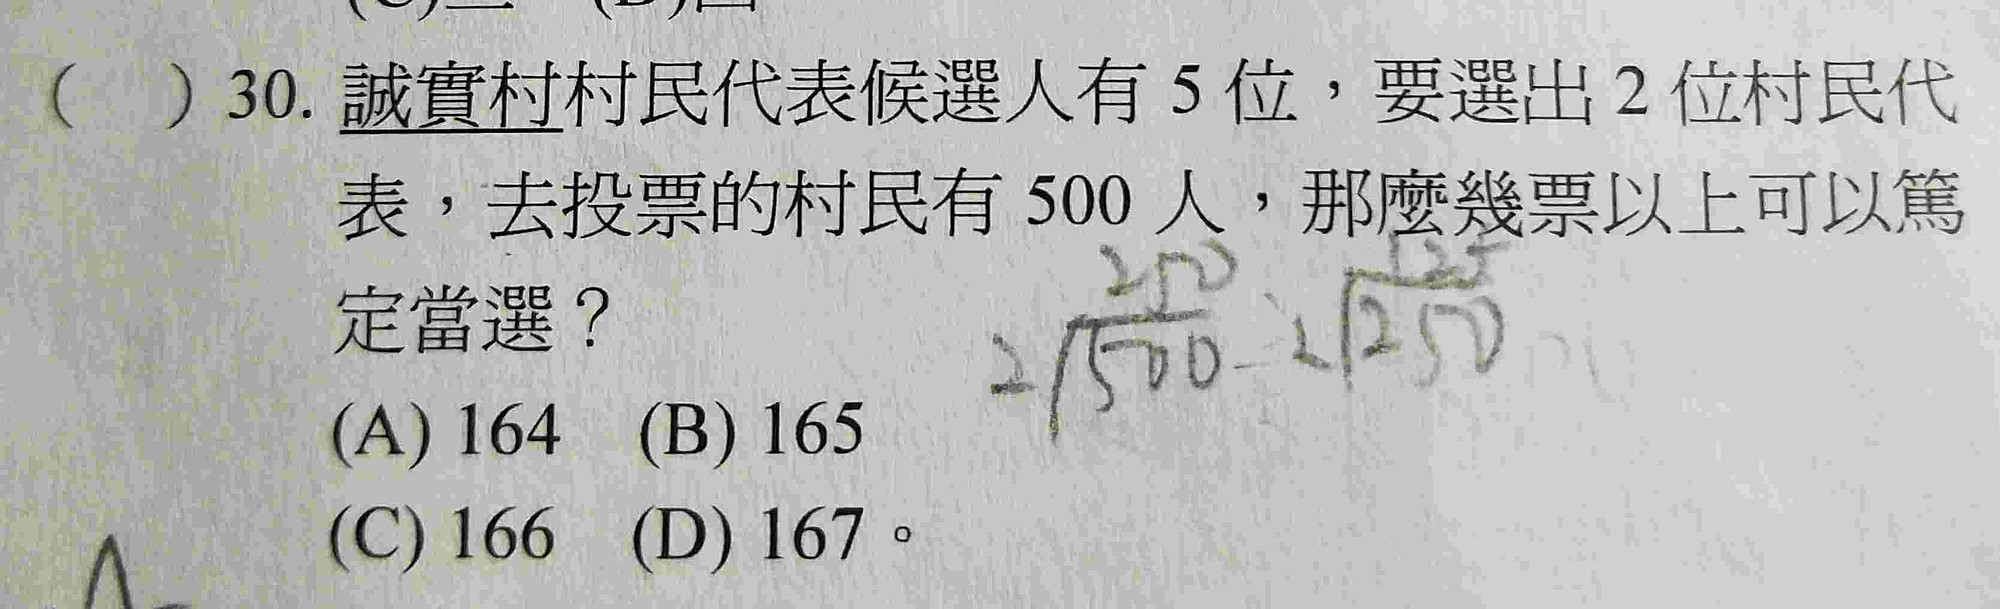 ( ) 30. 誠實村村民代表候選人有 5 位，要選出 2 位村民代
表，去投票的村民有 500 人，那麼幾票以上可以篤
定當選？
250
2√500
125
2√250
(A) 164 (B) 165
(C) 166 (D) 167。